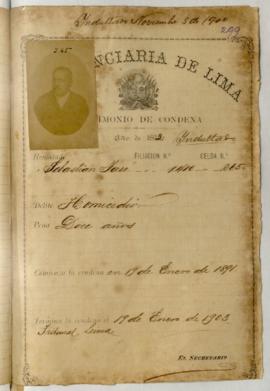 Indultado Noviembre 3 de 1900
299
245
NCIARIA DE LIMA
IMONIO DE CONDENA
Año de 1892 Indultado
Rematado FILIACION N.º CELDA N.º
Sebastian 1410 265
Delito Homicidio
Pena Doce años
Comienza la condena en 19 de Enero de 1891
Termina la condena el 19 de Enero de 1903
Tribunal, Lima
EL SECRETARIO